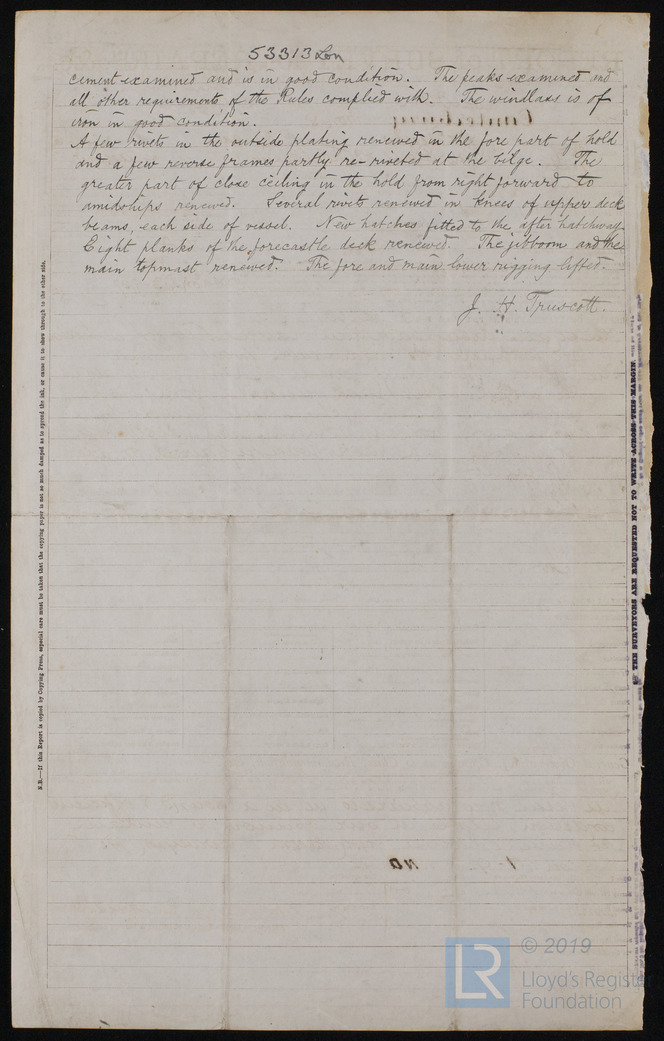 53313 Lon
cement examined and is in good condition. The peaks examined and
all other requirements of the Rules complied with. The windlass is of
iron in good condition.
A few rivets in the outside plating renewed in the fore part of hold
and a few reverse frames partly re-riveted at the bilge. The
greater part of close ceiling in the hold from right forward to
amidships renewed. Several rivets renewed in knees of upper deck
beams, each side of vessel. New hatches fitted to the after hatchway.
Eight planks of the forecastle deck renewed. The jibboom and the
main topmast renewed. The fore and main lower rigging lifted.
J. H. Truscott.
N.B.—If this Report is copied by Copying Press, especial care must be taken that the copying paper is not so much damped as to spread the ink, or cause it to show through to the other side.
THE SURVEYORS ARE REQUESTED NOT TO WRITE ACROSS THIS MARGIN.
LR
© 2019
Lloyd's Register
Foundation